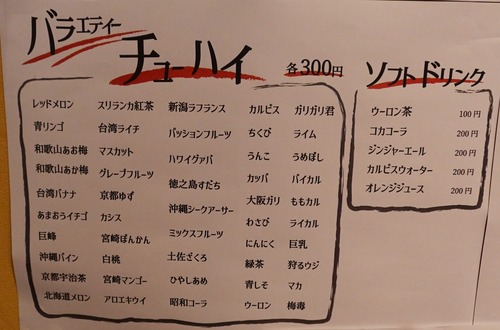 バラエティー
チューハイ
各300円
レッドメロン
青リンゴ
和歌山あお梅
和歌山あか梅
台湾バナナ
あまおうイチゴ
巨峰
沖縄パイン
京都宇治茶
北海道メロン
スリランカ紅茶
台湾ライチ
マスカット
グレープフルーツ
京都ゆず
カシス
宮崎ぽんかん
白桃
宮崎マンゴー
アロエキウイ
新潟ラフランス
パッションフルーツ
ハワイグァバ
徳之島すだち
沖縄シークアーサー
ミックスフルーツ
土佐ざくろ
ひやしあめ
昭和コーラ
カルピス
ちくび
うんこ
カッパ
大阪ガリ
わさび
にんにく
緑茶
青しそ
ウーロン
ガリガリ君
ライム
うめぼし
バイカル
ももカル
ライカル
巨乳
狩るウジ
マカ
梅毒
ソフトドリンク
ウーロン茶 100円
コカコーラ 200円
ジンジャーエール 200円
カルピスウオーター 200円
オレンジジュース 200円